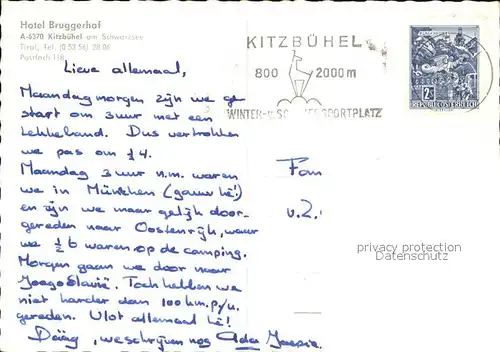 Hotel Bruggerhof
A-6370 Kitzbühel am Schwarzsee
Tirol, Tel. (0 53 56) 28 06
Postfach 118
KITZBÜHEL
800 2000 m
WINTER-u. SOMMERSPORTPLATZ
REPUBLIK ÖSTERREICH
Lieve allemaal,
Maandagmorgen zijn we ge
start om 3 uur met een
lekkeband. Dus vertrokken
we pas om ½4.
Maandag 3 uur n.m. waren
we in München (gauw hè!)
en zijn we maar gelijk door-
gereden naar Oostenrijk, waar
we ½ 6 waren op de camping.
Morgen gaan we door naar
Joegoslavië. Toch hebben we
niet harder dan 100 km.p./u.
gereden. Vlot allemaal hè!
Dàag, we schrijven nog Ada
Fam
v.Z.
privacy protection
Datenschutz